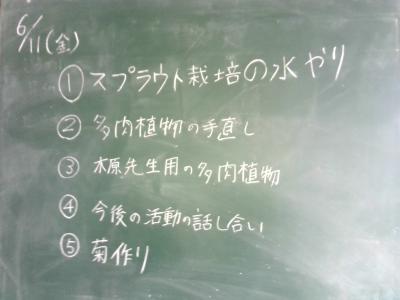 6/11(金)
① スプラウト栽培の水やり
② 多肉植物の手直し
③ 木原先生用の多肉植物
④ 今後の活動の話し合い
⑤ 菊作り